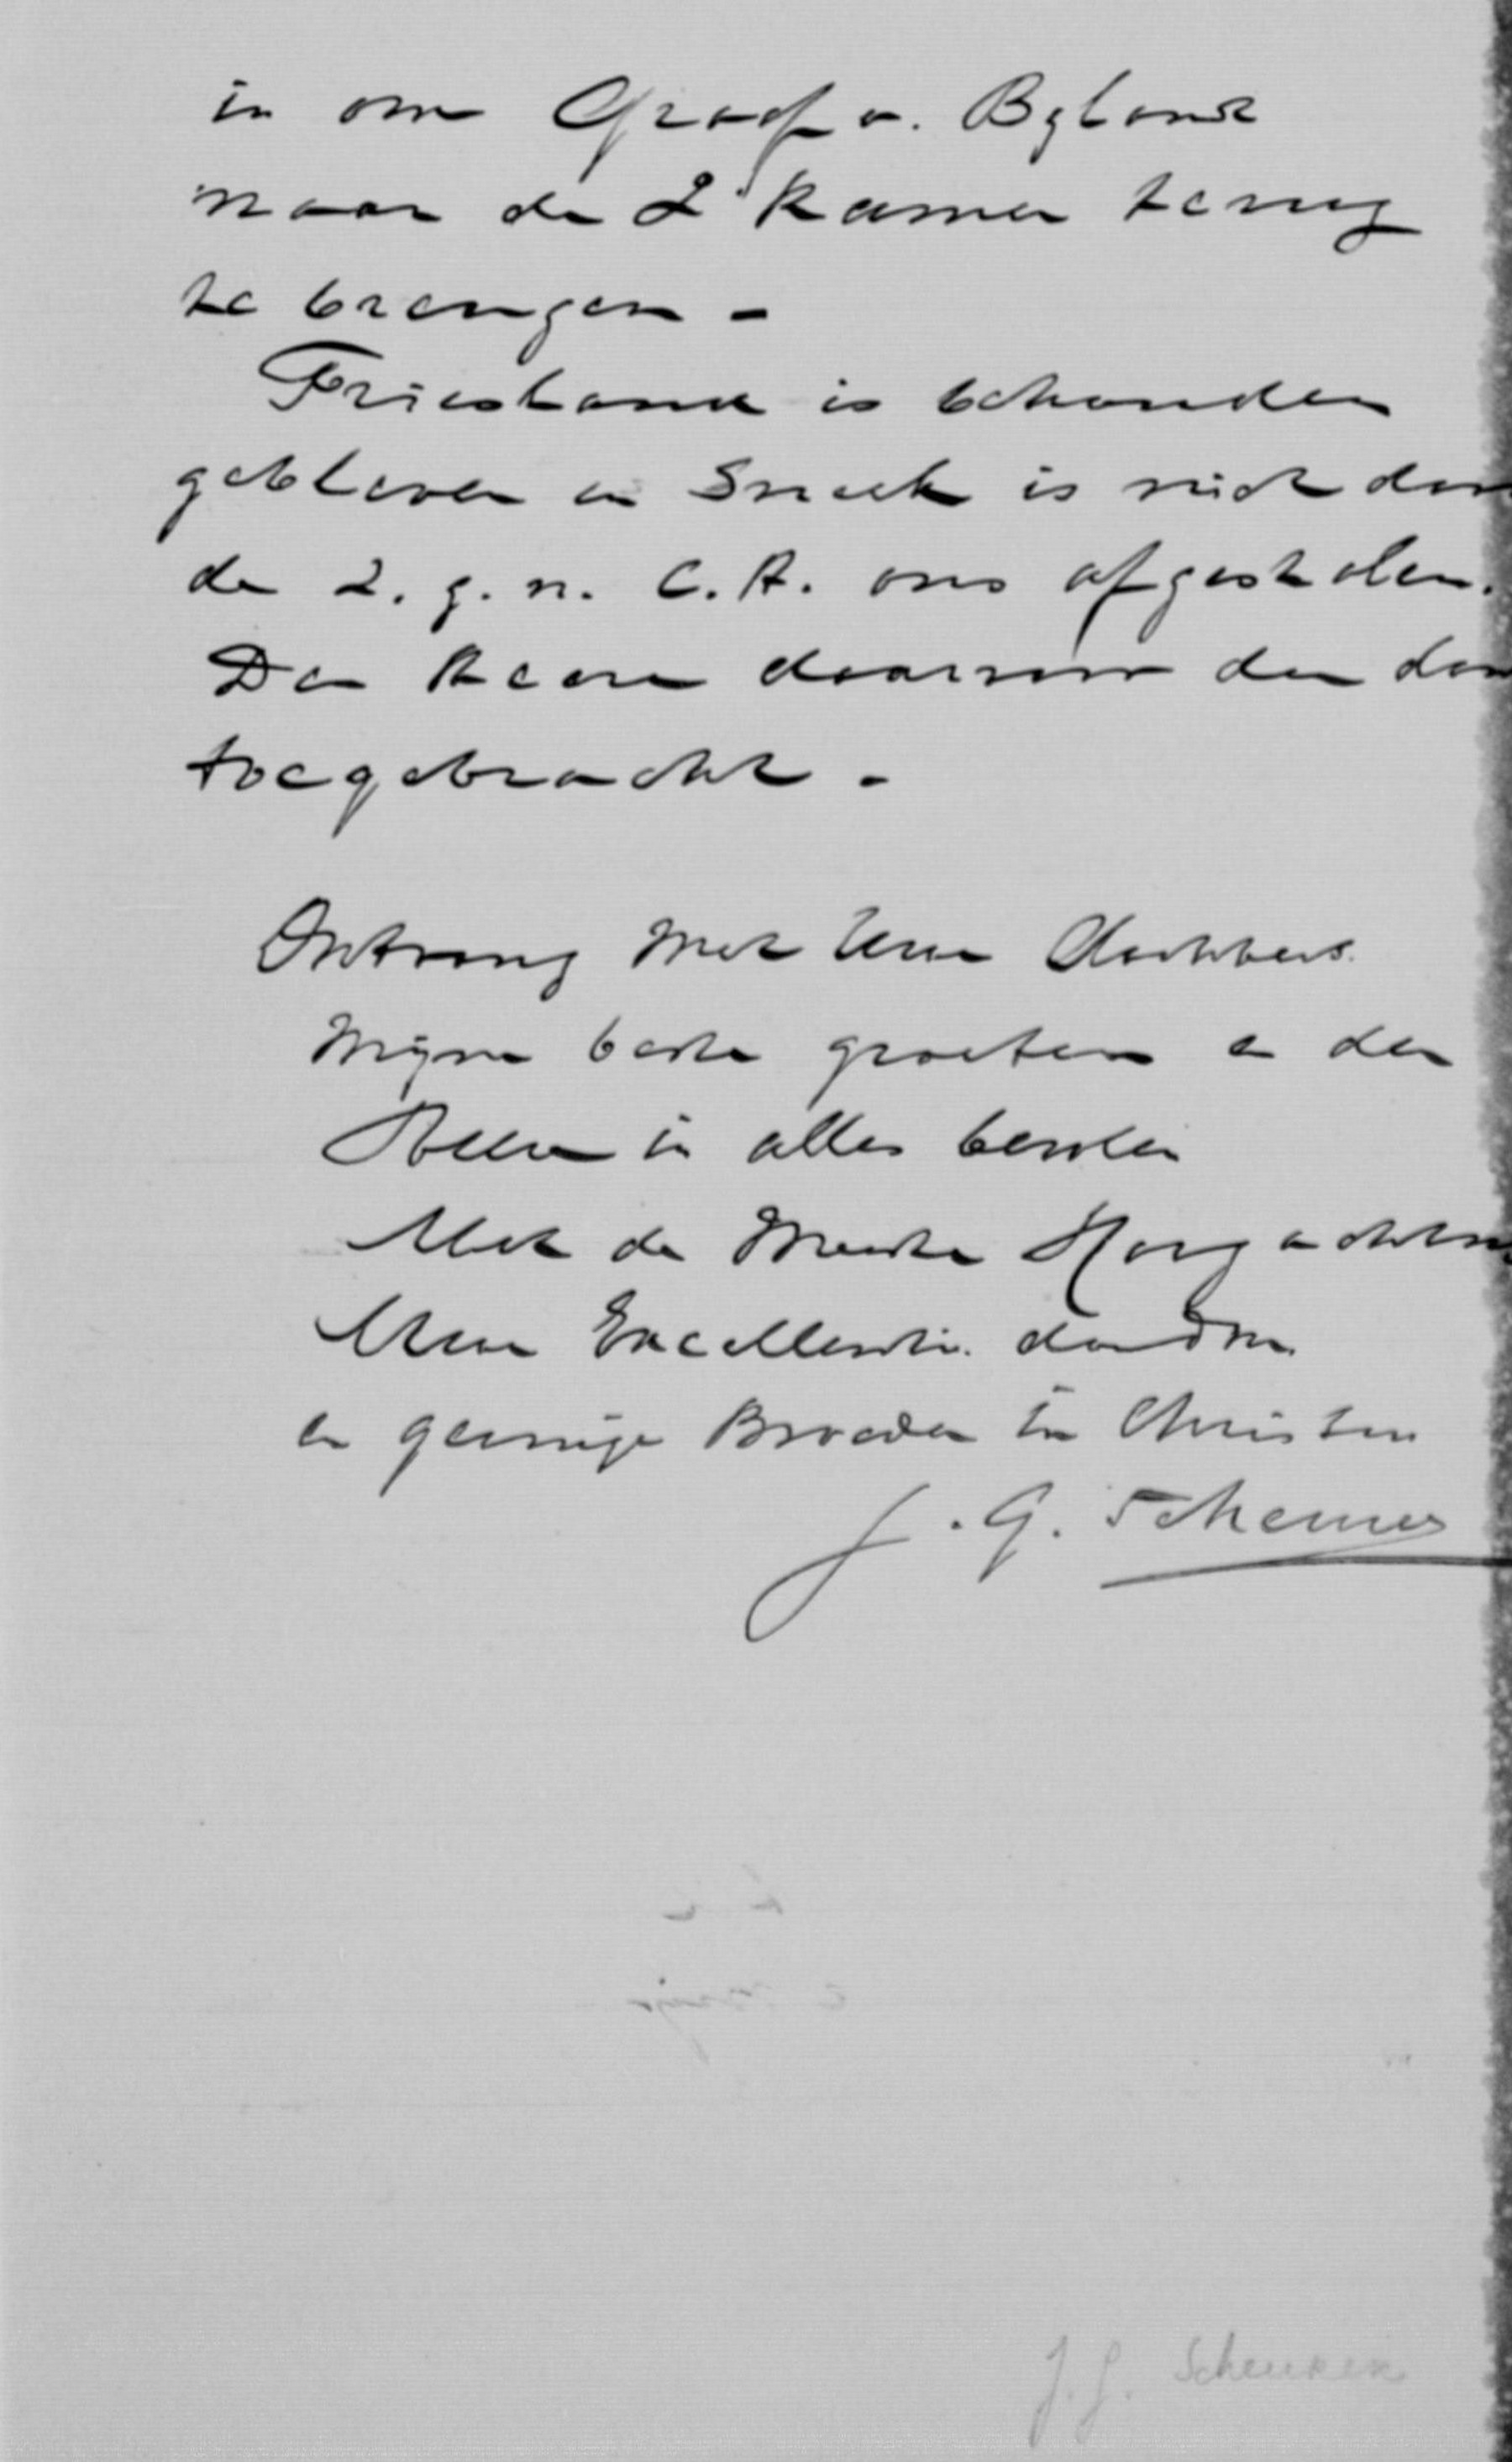 in om Graaf v. Bylandt
naar de 2e Kamer terug
te brengen -
Friesland is behouden
gebleven en Sneek is niet door
de z. g. n. C. H. ons afgestolen.
Den Heere daarvoor den dan
toegebracht -
Ontvang met Uwe dochters
Mijne beste groeten en den
Heere in alles bevolen
Met de Meeste Hoogachting
Uwe Excellentie
en geringe Broeder in Christus
J. G. Scheurer
J. G. Scheurer